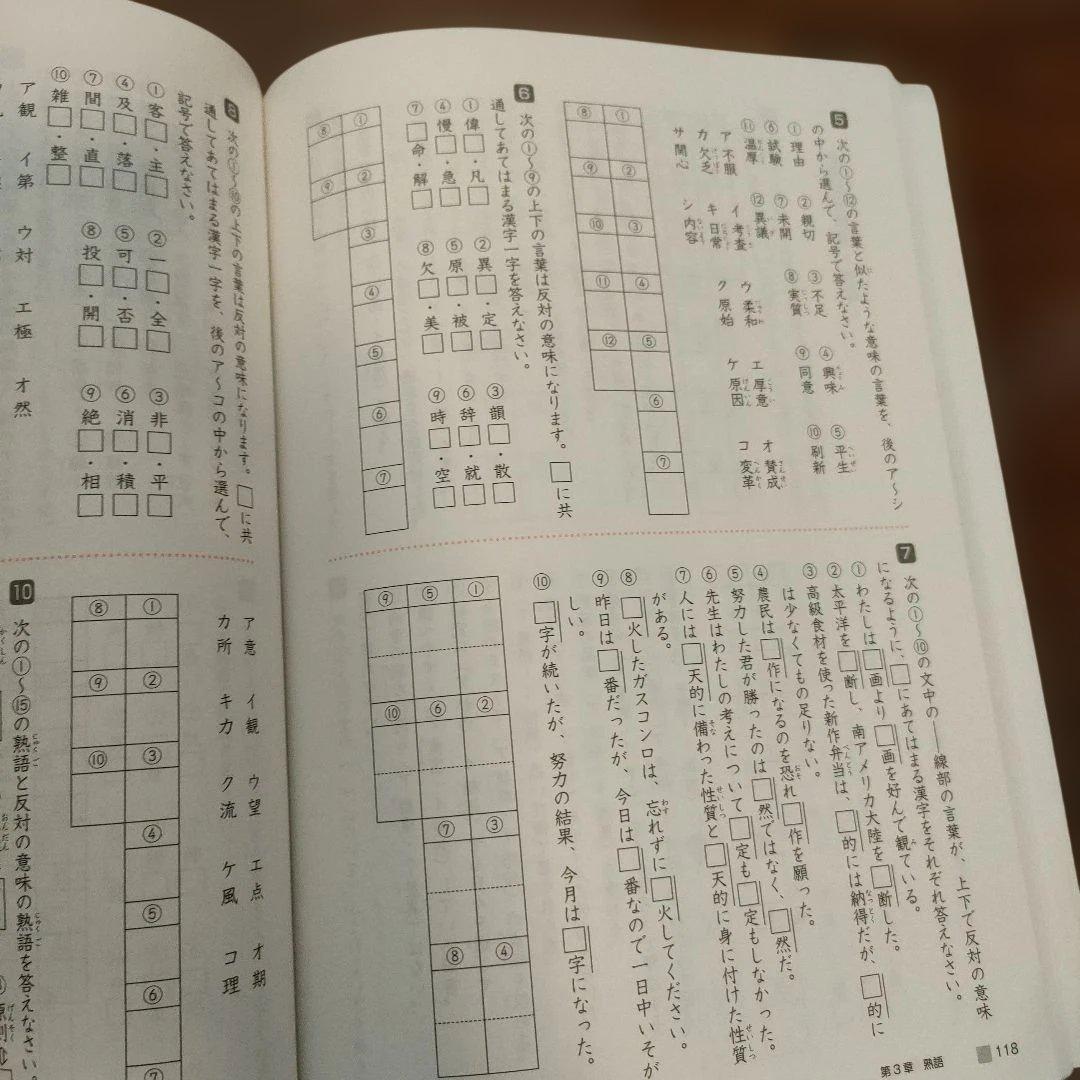 5 次の①〜⑫の言葉と似たような意味の言葉を、後のア〜シ
の中から選んで、記号で答えなさい。
①理由 ②親切 ③不足 ④興味 ⑤平生
⑥試験 ⑦未開 ⑧実質 ⑨同意 ⑩刷新
⑪温厚 ⑫異議
ア 不服 イ 考査 ウ 柔和 エ 厚意 オ 賛成
カ 欠乏 キ 日常 ク 原始 ケ 原因 コ 変革
サ 関心 シ 内容
① ② ③ ④ ⑤ ⑥ ⑦
⑧ ⑨ ⑩ ⑪ ⑫
6 次の①〜⑨の上下の言葉は反対の意味になります。□に共
通してあてはまる漢字一字を答えなさい。
①偉□・凡□ ②異□・定□ ③韻□・散□
④慢□・急□ ⑤原□・被□ ⑥辞□・就□
⑦□命・解□ ⑧欠□・美□ ⑨時□・空□
① ② ③ ④ ⑤ ⑥ ⑦
⑧ ⑨
7 次の①〜⑩の文中の――線部の言葉が、上下で反対の意味
になるように、□にあてはまる漢字をそれぞれ答えなさい。
①わたしは□画より□画を好んで観ている。
②太平洋を□断し、南アメリカ大陸を□断した。
③高級食材を使った新作弁当は、□的には納得だが、□的に
は少なくてもの足りない。
④農民は□作になるのを恐れ□作を願った。
⑤努力した君が勝ったのは□然ではなく、□然だ。
⑥先生はわたしの考えについて□定も□定もしなかった。
⑦人には□天的に備わった性質と□天的に身に付けた性質
がある。
⑧□火したガスコンロは、忘れずに□火してください。
⑨昨日は□番だったが、今日は□番なので一日中いそが
しい。
⑩□字が続いたが、努力の結果、今月は□字になった。
① ② ③ ④
⑤ ⑥ ⑦ ⑧
⑨ ⑩
118
第3章 熟語
次の①〜⑩の上下の言葉は反対の意味になります。□に共
通してあてはまる漢字一字を、後のア〜コの中から選んで、
記号で答えなさい。
①客□・主□ ②一□・全□ ③非□・平□
④及□・落□ ⑤可□・否□ ⑥消□・積□
⑦間□・直□ ⑧投□・開□ ⑨絶□・相□
⑩雑□・整□
ア 観 イ 第 ウ 対 エ 極 オ 然
ア 意 イ 観 ウ 望 エ 点 オ 期
カ 所 キ 力 ク 流 ケ 風 コ 理
① ② ③ ④ ⑤ ⑥ ⑦
⑧ ⑨ ⑩
10 次の①〜⑮の熟語と反対の意味の熟語を答えなさい。